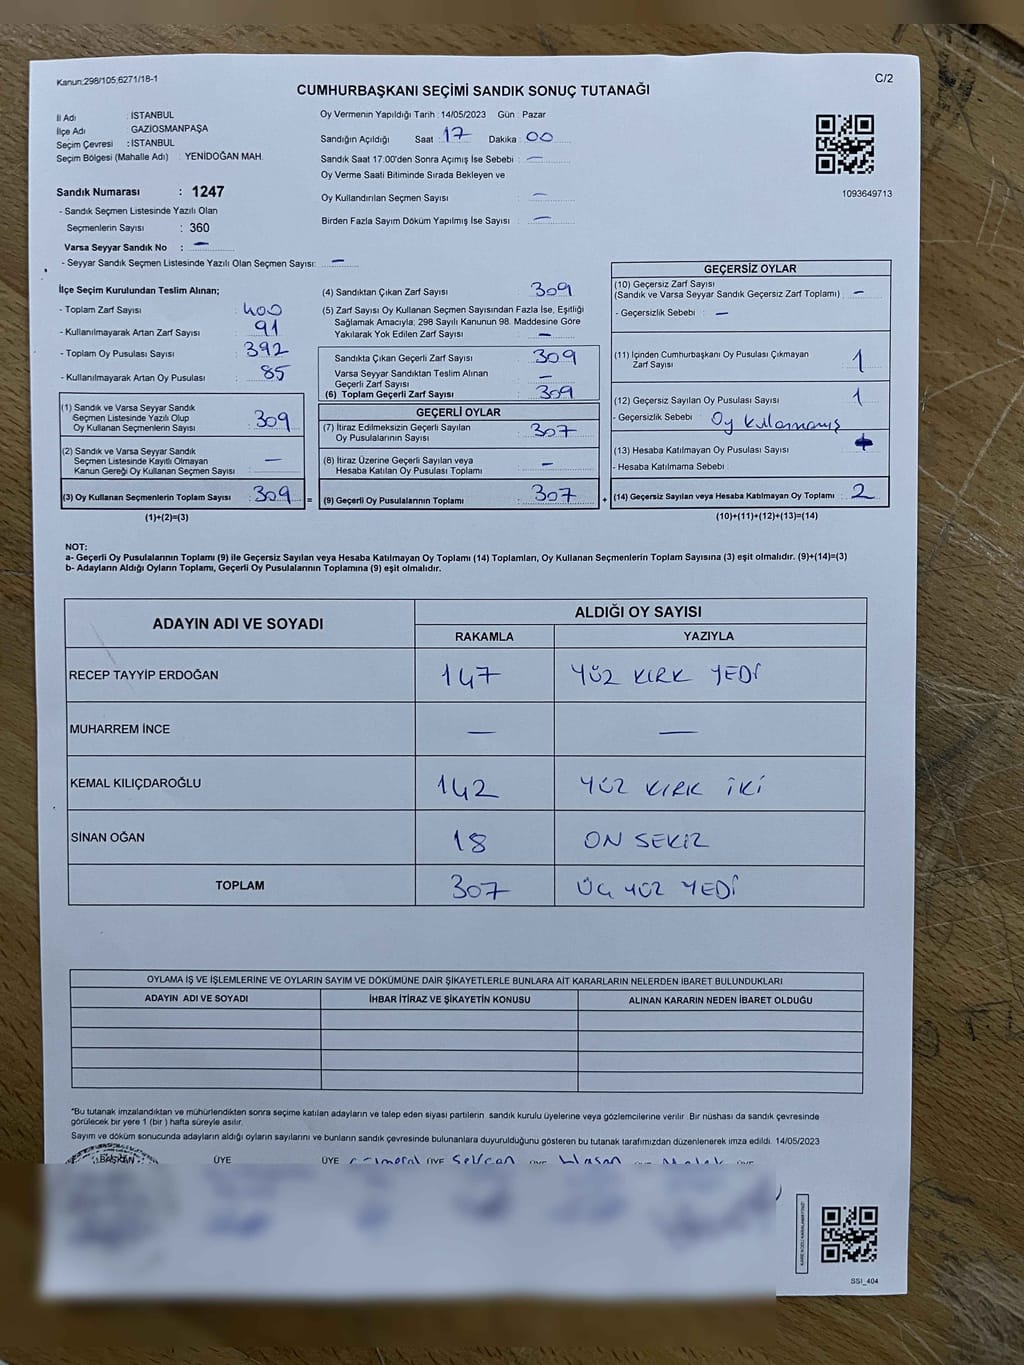 Kanun:298/105;6271/18-1
C/2
CUMHURBAŞKANI SEÇİMİ SANDIK SONUÇ TUTANAĞI
İl Adı : İSTANBUL
İlçe Adı GAZİOSMANPAŞA
Seçim Çevresi : İSTANBUL
Seçim Bölgesi (Mahalle Adı) : YENİDOĞAN MAH.
Sandık Numarası : 1247
- Sandık Seçmen Listesinde Yazılı Olan
Seçmenlerin Sayısı : 360
Varsa Seyyar Sandık No : —
- Seyyar Sandık Seçmen Listesinde Yazılı Olan Seçmen Sayısı: —
Oy Vermenin Yapıldığı Tarih : 14/05/2023 Gün : Pazar
Sandığın Açıldığı Saat : 17 Dakika : 00
Sandık Saat 17.00'den Sonra Açımış İse Sebebi : —
Oy Verme Saati Bitiminde Sırada Bekleyen ve
Oy Kullandırılan Seçmen Sayısı : —
Birden Fazla Sayım Döküm Yapılmış İse Sayısı : —
1093649713
İlçe Seçim Kurulundan Teslim Alınan;
- Toplam Zarf Sayısı : 400
- Kullanılmayarak Artan Zarf Sayısı : 91
- Toplam Oy Pusulası Sayısı : 392
- Kullanılmayarak Artan Oy Pusulası : 85
(1) Sandık ve Varsa Seyyar Sandık
Seçmen Listesinde Yazılı Olup
Oy Kullanan Seçmenlerin Sayısı : 309
(2) Sandık ve Varsa Seyyar Sandık
Seçmen Listesinde Kayıtlı Olmayan
Kanun Gereği Oy Kullanan Seçmen Sayısı : —
(3) Oy Kullanan Seçmenlerin Toplam Sayısı : 309 =
(1)+(2)=(3)
(4) Sandıktan Çıkan Zarf Sayısı : 309
(5) Zarf Sayısı Oy Kullanan Seçmen Sayısından Fazla İse, Eşitliği
Sağlamak Amacıyla; 298 Sayılı Kanunun 98. Maddesine Göre
Yakılarak Yok Edilen Zarf Sayısı : —
Sandıkta Çıkan Geçerli Zarf Sayısı : 309
Varsa Seyyar Sandıktan Teslim Alınan
Geçerli Zarf Sayısı : —
(6) Toplam Geçerli Zarf Sayısı : 309
GEÇERLİ OYLAR
(7) İtiraz Edilmeksizin Geçerli Sayılan
Oy Pusulalarının Sayısı : 307
(8) İtiraz Üzerine Geçerli Sayılan veya
Hesaba Katılan Oy Pusulası Toplamı : —
(9) Geçerli Oy Pusulalarının Toplamı : 307 +
GEÇERSİZ OYLAR
(10) Geçersiz Zarf Sayısı
(Sandık ve Varsa Seyyar Sandık Geçersiz Zarf Toplamı) : —
- Geçersizlik Sebebi : —
(11) İçinden Cumhurbaşkanı Oy Pusulası Çıkmayan
Zarf Sayısı : 1
(12) Geçersiz Sayılan Oy Pusulası Sayısı : 1
- Geçersizlik Sebebi : Oy kullanmamış
(13) Hesaba Katılmayan Oy Pusulası Sayısı :
- Hesaba Katılmama Sebebi :
(14) Geçersiz Sayılan veya Hesaba Katılmayan Oy Toplamı : 2
(10)+(11)+(12)+(13)=(14)
NOT:
a- Geçerli Oy Pusulalarının Toplamı (9) ile Geçersiz Sayılan veya Hesaba Katılmayan Oy Toplamı (14) Toplamları, Oy Kullanan Seçmenlerin Toplam Sayısına (3) eşit olmalıdır. (9)+(14)=(3)
b- Adayların Aldığı Oyların Toplamı, Geçerli Oy Pusulalarının Toplamına (9) eşit olmalıdır.
ADAYIN ADI VE SOYADI
ALDIĞI OY SAYISI
RAKAMLA YAZIYLA
RECEP TAYYİP ERDOĞAN 147 YÜZ KIRK YEDİ
MUHARREM İNCE — —
KEMAL KILIÇDAROĞLU 142 YÜZ KIRK İKİ
SİNAN OĞAN 18 ON SEKİZ
TOPLAM 307 ÜÇ YÜZ YEDİ
OYLAMA İŞ VE İŞLEMLERİNE VE OYLARIN SAYIM VE DÖKÜMÜNE DAİR ŞİKAYETLERLE BUNLARA AİT KARARLARIN NELERDEN İBARET BULUNDUKLARI
ADAYIN ADI VE SOYADI İHBAR İTİRAZ VE ŞİKAYETİN KONUSU ALINAN KARARIN NEDEN İBARET OLDUĞU
*Bu tutanak imzalandıktan ve mühürlendikten sonra seçime katılan adayların ve talep eden siyasi partilerin sandık kurulu üyelerine veya gözlemcilerine verilir. Bir nüshası da sandık çevresinde
görülecek bir yere 1 (bir) hafta süreyle asılır.
Sayım ve döküm sonucunda adayların aldığı oyların sayılarını ve bunların sandık çevresinde bulunanlara duyurulduğunu gösteren bu tutanak tarafımızdan düzenlenerek imza edildi. 14/05/2023
BAŞKAN ÜYE ÜYE ÜYE Sevcan ÜYE Hasan ÜYE Melek ÜYE
SSI_404